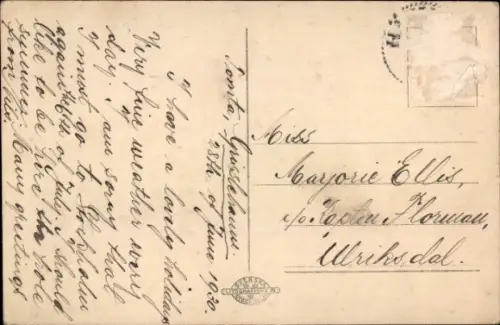 Tomta, Grisslehamn
28th of June 1920.
I have a lovely holiday
Very fine weather every
day. I am sorry that
I must go to Stockholm
again the 7th of July. I should
like to be here the hole
summer. Many greetings
from
Miss
Marjorie Ellis,
c/o Kapten Florman,
Ulriksdal.